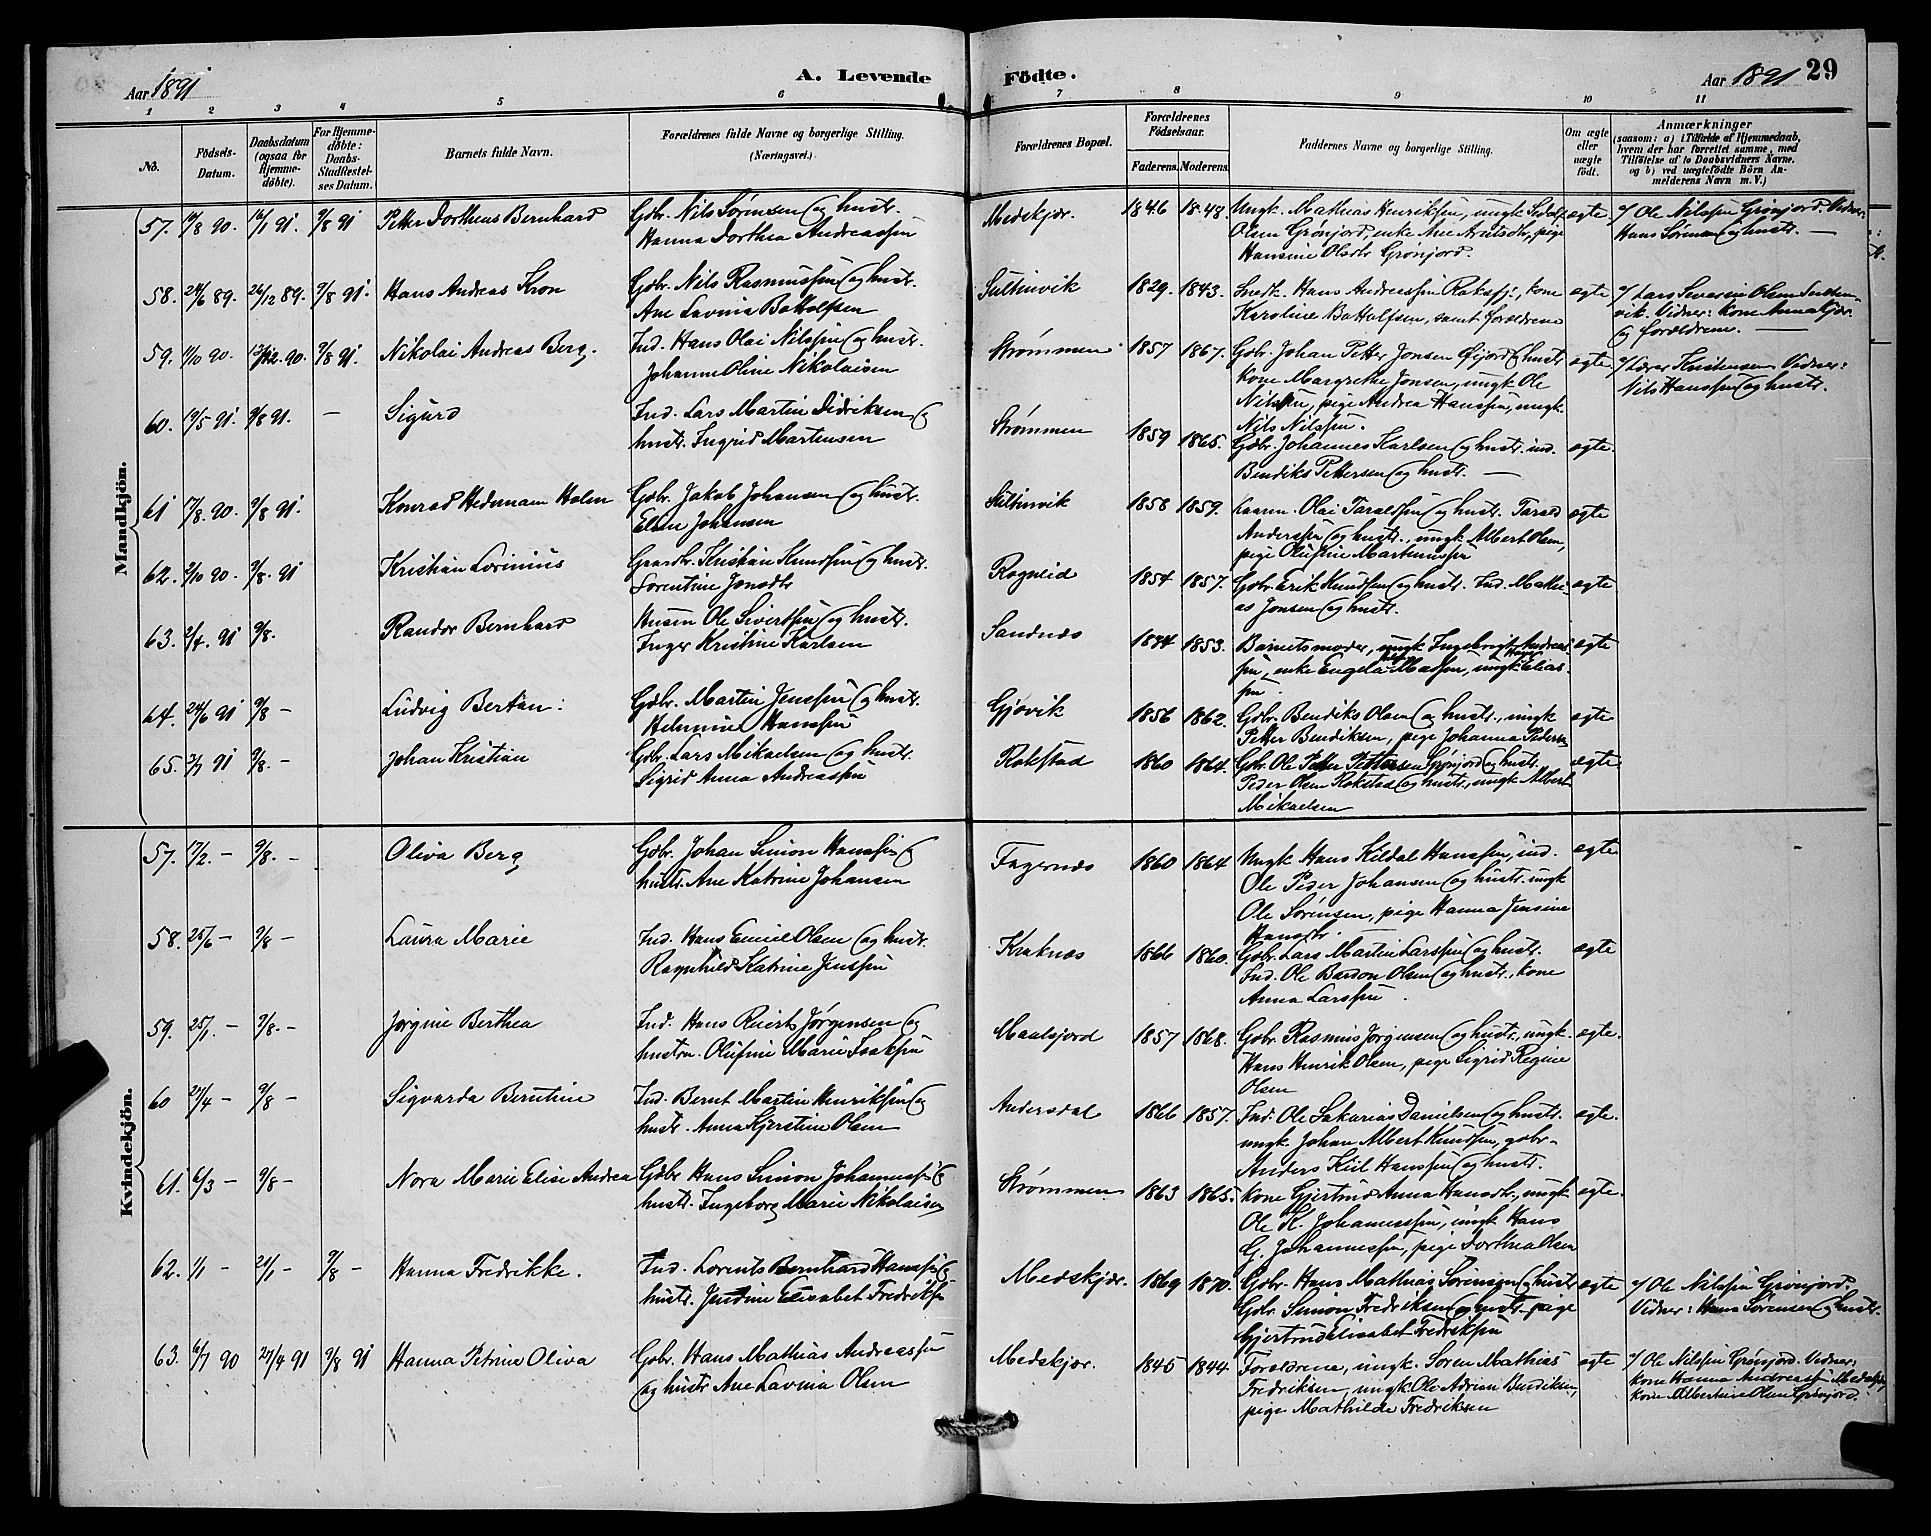 Aar 1891
A. Levende
Födte.
Aar 1891
29
1 2 3 4 5 6 7 8 9 10 11
No.
Födsels-
Datum.
Daabsdatum
(ogsaa for
Hjemme-
döbte).
For Hjemme-
döbte:
Daabs-
Stadfestel-
ses Datum.
Barnets fulde Navn.
Forældrenes fulde Navne og borgerlige Stilling.
(Næringsvei.)
Forældrenes Bopæl.
Forældrenes
Födselsaar.
Faderens. Moderens.
Faddernes Navne og borgerlige Stilling.
Om ægte
eller
uægte
födt.
Anmærkninger
(saasom: a) i Tilfælde af Hjemmedaab,
hvem der har forrettet samme, med
Tilföielse af to Daabsvidners Navne.
og b) ved uægtefödte Börn An-
melderens Navn m. V.)
Mandkjön.
57. 19/8 90. 16/1 91. 9/8 91 Petter Dortheus Bernhard
Gbr. Nils Sørensen og hustr.
Hanna Dorthea Andreassen
Medskjær. 1846 1848.
Ungk. Mathias Henriksen, ungk.
Olsen Grønjord, enke Ane, pige
Hansine Olsdtr Grønjord.
ægte
v/ Ole Nilssen Grønjord. Vidner:
Hans Sørensen og hustr. —
58. 24/6 89. 26/12 89. 9/8 91. Hans Andreas Kron
Gbr. Nils Rasmussen og hustr.
Ane Lavina Bottolfsen
Sultinvik 1829. 1843.
Snedk. Hans Andreassen, kone
Karoline Bottolfsen, samt forældrene
ægte
v/ Lars Severin Olsen Sultin-
vik. Vidner: kone Anna
og forældrene. —
59. 11/10 90. 12. 90. 9/8 91. Nikolai Andreas Berg.
Ind. Hans Olai Nilssen og hustr.
Johanne Oline Nikolaisen
Strømmen 1857 1867.
Gbr. Johan Petter Jonsen Øijord og hustr
kone Margrethe Jonsen, ungk Ole
Nilssen, pige Andrea Hanssen, ungk.
Nils Nilssen.
ægte
v/ Lærer Kristensen Vidner:
Nils Hanssen og hustr.
60. 19/5 91. 9/8 91. — Sigurd
Ind. Lars Martin Didriksen og
hustr. Ingrid Martensen
Strømmen 1859 1865.
Gbr. Johannes Karlsen og hustr. ind.
Bendiks Pettersen og hustr. —
ægte.
61 17/8. 90. 9/8 91. Konrad Hedemann Holm
Gbr. Jakob Johansen og hustr.
Elen Johansen
Sultinvik 1858 1859.
Olai Taraldsen og hustr. Tarald
Anderssen og hustr., ungk Albert Olsen,
pige Olufine Martinussen
ægte
62. 2/10 90. 9/8. 91 Kristian Lorinius
Kristian Knudsen og hustr.
Lorentine Jonsdtr
Rogneid 1854 1857.
Gbr. Erik Knudsen og hustr. Ind. Mathi-
as Jonsen og hustr.
ægte
63. 2/4. 91 9/8. Randor Bernhard
Husm Ole Sivertsen og hustr.
Inger Kristine Karlsen
Sandnæs 1853.
Barnets moder, ungk. Ingebrigt Andreas-
sen, enke Engela, ungk. Elias-
sen.
ægte
64. 24/6 91 9/8 — Ludvig Bertin:
Gbr. Martin Jenssen og hustr.
Helmine Hanssen
Gjøvik 1856 1862.
Gbr. Bendiks Olsen og hustr., ungk
Petter Bendiksen, pige Johanna Pedersen
ægte
65. 2/7 91 9/8. — Johan Kristian
Gbr. Lars Mikaelsen og hustr.
Sigrid Anna Andreassen
Rokstad 1860 1864.
Gbr. Ole Petter Pettersen Grønjord og hustr.
Peder Olsen Rokstad og hustr., ungk Albert
Mikaelsen
ægte.
Kvindekjön.
57. 17/2. — 9/8. — Oliva Berg
Gbr. Johan Simon Hanssen og
hustr. Ane Katrine Johansen
Fagernæs 1860 1864
Ungk Hans Kildal Hanssen, ind.
Ole Peder Johansen og hustr. ungk
Ole Sørensen, pige Hanna Jensine
Hansdtr. —
ægte
58. 25/6 — 9/8 — Laura Marie
Ind. Hans Emiel Olsen og hustr.
Ragnhild Katrine Jenssen
Kraknæs 1866 1860.
Gbr. Lars Martin Larssen og hustr.
Ind. Ole Bardon Olsen og hustr., kone
Anna Larssen.
ægte
59. 25/1. — 9/8. — Jørgine Berthea
Ind. Hans Reierts Jørgensen og
hustru. Olufine Marie Isaksen
Maalsjord 1857 1868.
Gbr. Rasmus Jørgensen og hustr., ungk.
Hans Henrik Olsen, pige Sigrid Regine
Olsen
ægte.
60 27/4 — 9/8 — Sigvarda Berntine
Ind. Bernt Martin Henriksen og
hustr. Anna Kjerstine Olsen
Andersdal 1866 1857.
Ind. Ole Sakarias Danielsen og hustr.
ungk. Johan Albert Knudsen, gbr.
Anders Kiil Hanssen og hustr.
ægte.
61. 6/3 — 9/8 — Nora Marie Elise Andrea
Gbr Hans Simon Johannessen og
hustr. Ingeborg Marie Nikolaisen
Strømmen 1863 1865.
kone Gjertrud Anna Hansdtr., ungk
Ole K. Johannessen, ungk Hans
G. Johannessen, pige Dorthea Olsen
ægte.
62. 1/1 — 21/1 — 9/8 — Hanna Fredrikke.
Ind. Lorents Bernhard Hanssen og
hustr. Jensine Elisabet Fredriksen
Medskjær. 1869 1870.
Gbr. Hans Mathias Sørensen og hustr
Gbr Simon Fredriksen og hustr. pige
Gjertrud Elisabet Fredriksen
ægte
v/ Ole Nilssen Grønjord.
Vidner: Hans Sørensen og hustr.
63. 6/7 90 27/4 91 9/8 91 Hanna Petrine Oliva
Gbr. Hans Mathias Andreassen
og hustr Ane Lavina Olsen
Medskjær. 1845 1844
Forældrene, ungk. Søren Mathias
Fredriksen, ungk Ole Adrian Bendiksen,
pige Mathilde Fredriksen
ægte
v/ Ole Nilssen Grønjord. Vidner:
kone Hanna Andreassen Medskjær,
kone Albertine Olsen Grønjord.